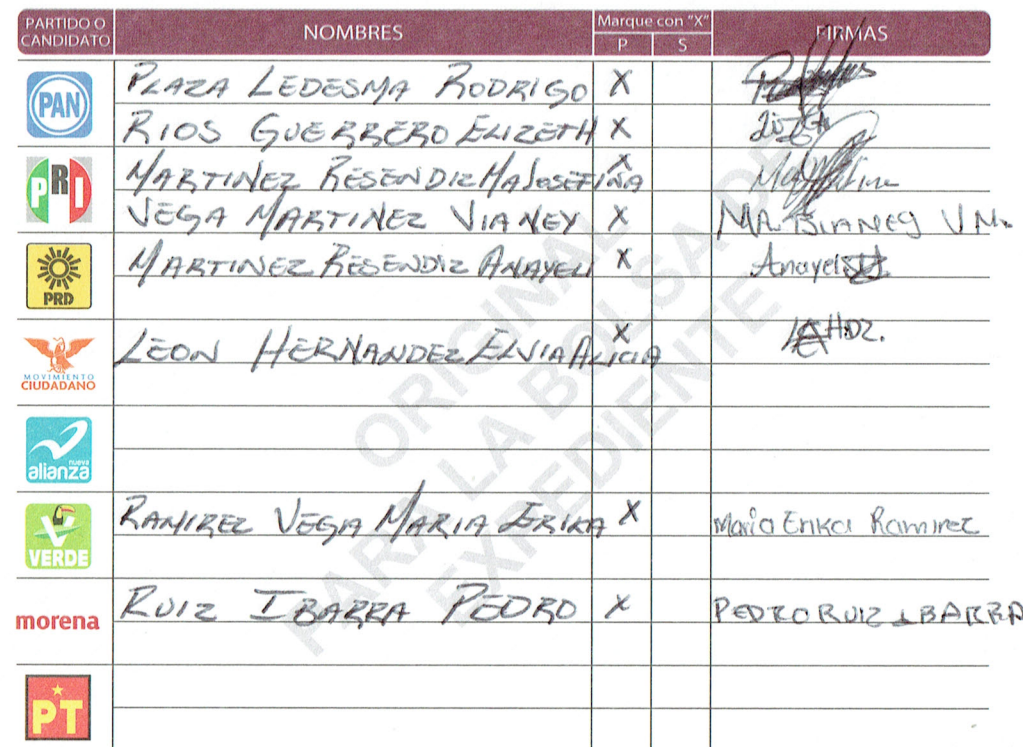 PARTIDO O CANDIDATO NOMBRES Marque con "X" P S FIRMAS
PAN PLAZA LEDESMA RODRIGO X
RIOS GUERRERO ELIZETH X
PRI MARTINEZ RESENDIZ MA JOSEFINA X
VEGA MARTINEZ VIANEY X MA. VIANEY V M.
PRD MARTINEZ RESENDIZ ANAYELI X Anayeli
MOVIMIENTO CIUDADANO LEON HERNANDEZ ELVIA ALICIA X HDZ.
nueva alianza
VERDE RAMIREZ VEGA MARIA ERIKA X Maria Erika Ramirez
morena RUIZ IBARRA PEDRO X PEDRO RUIZ IBARRA
PT
ORIGINAL
PARA LA BOLSA DE
EXPEDIENTE